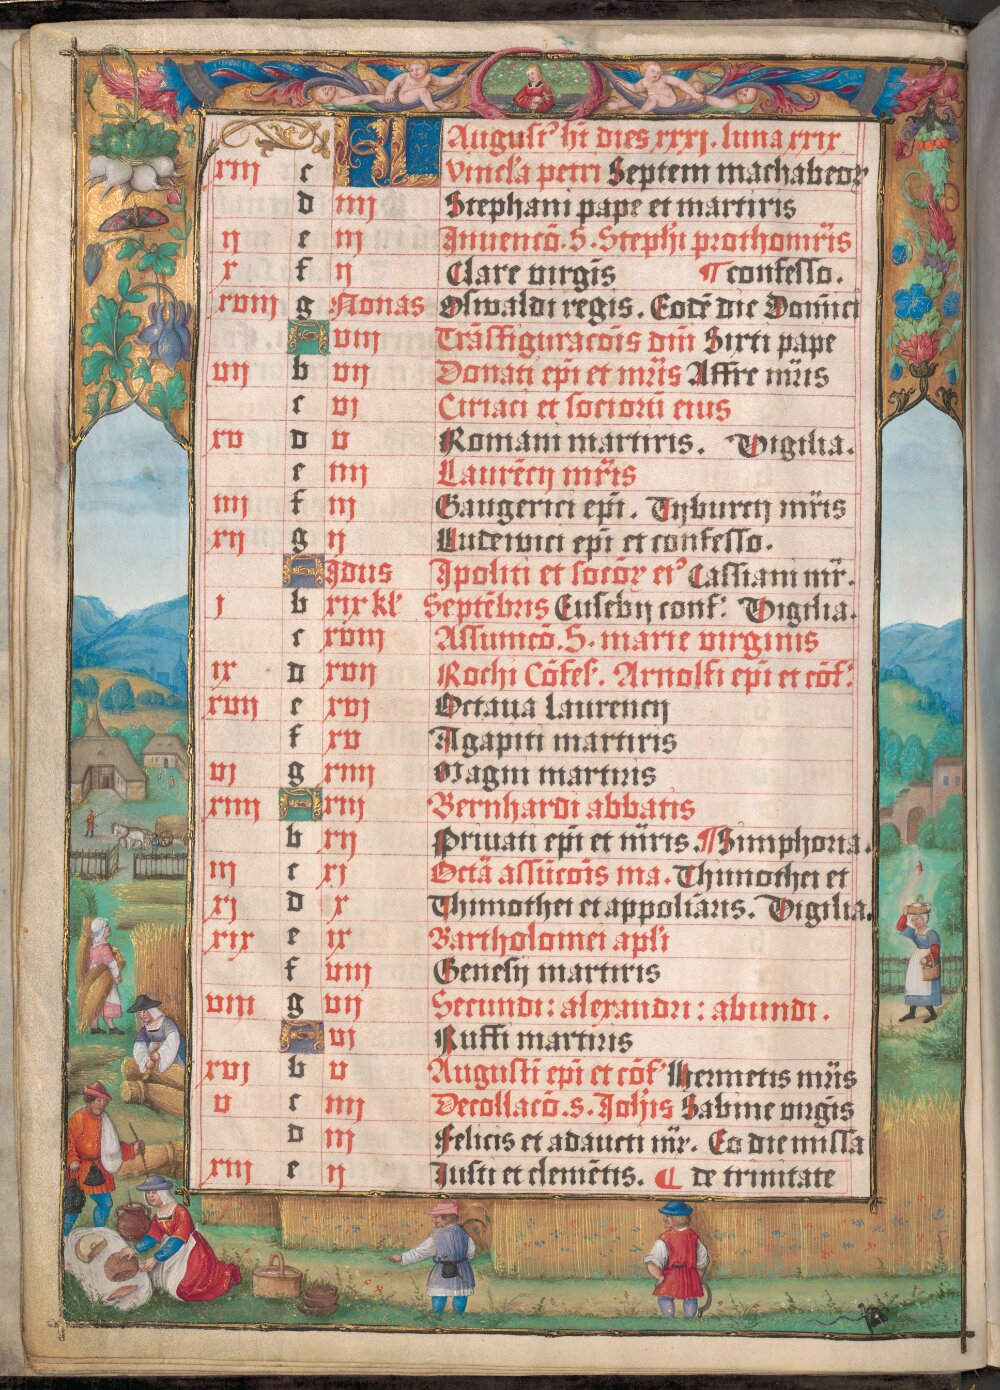 KL Augusť hñ dies xxxj. luna xxix
xiij c Vincl'a petri Septem machabeoꝝ
d iiij Stephani pape et martiris
ij e iij Inuencō. S. Stephi prothomr̄is
x f ij Clare virgīs ¶ confesso.
xviij g Nonas Oswaldi regis. Eodē die Domīci
A viij Trāsfiguracōis dnī Sixti pape
vij b vij Donati epī et mr̄is Affre mr̄is
c vj Ciriaci et sociorū eius
xv d v Romani martiris. Vigilia.
e iiij Laurēcij mr̄is
iiij f iij Gaugerici epī. Tyburcij mr̄is
xij g ij Ludewici epī et confesso.
A Idus Ipoliti et socoꝝ ei⁹ Cassiani mr̄.
j b xix kl' Septēbris Eusebij conf: Vigilia.
c xviij Assumcō. S. marie virginis
ix d xvij Rochi Cōfes. Arnolfi epī et cōf:
xvij e xvj Octaua Laurencij
f xv Agapiti martiris
vj g xiiij Magni martiris
xiiij A xiij Bernhardi abbatis
b xij Priuati epī et mr̄is. ¶ Simphoria.
iij c xj Octā assūcōis ma. Thimothei et
xj d x Thimothei et appoliāris. Vigilia.
xix e ix Bartholomei apl'i
f viij Genesij martiris
viij g vij Secundi: alexandri: abundi.
A vj Ruffi martiris
xvj b v Augustī epī et cōf' Hermetis mr̄is
v c iiij Decollacō. s. Joh̄is Sabine virgīs
d iij Felicis et adaucti mr̄. Eo die missa
xiij e ij Iusti et clemētis. ¶ de trinitate